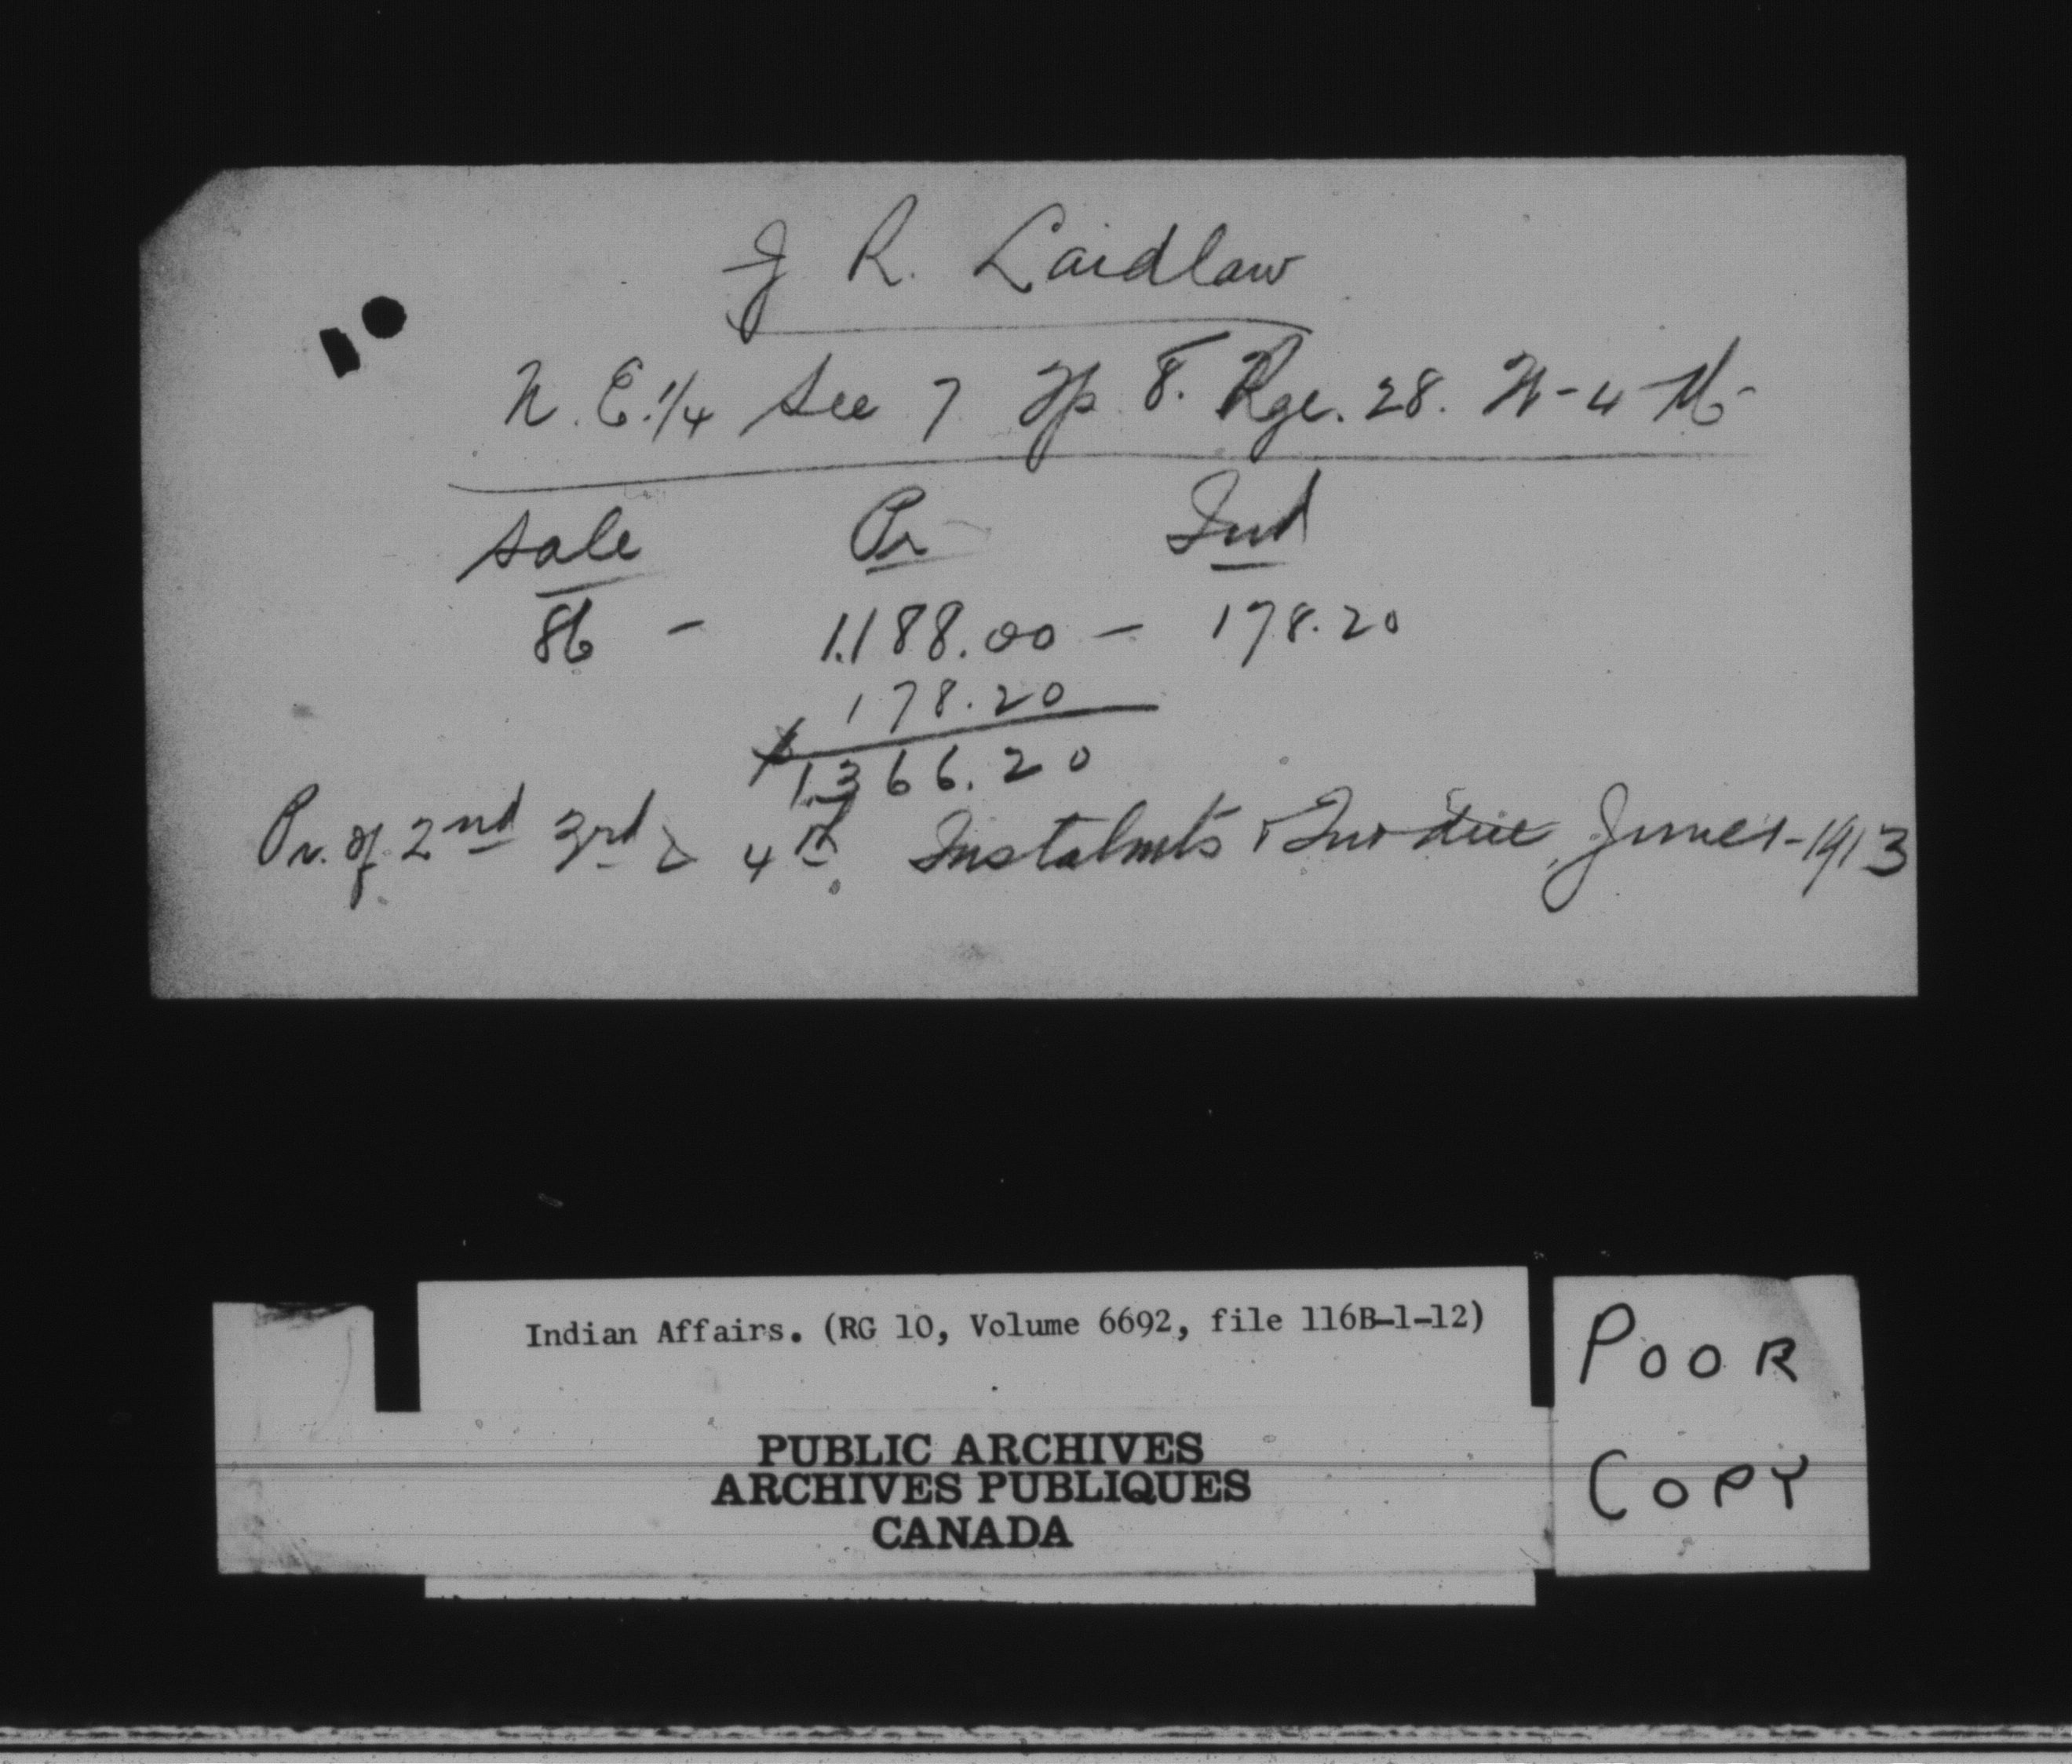 J R. Laidlaw
N. E. 1/4 Sec 7 Tp 8. Rge. 28. W-4-M-
Sale Pr Int
86 - 1188.00 - 178.20
178.20
1366.20
Pr. of 2nd 3rd & 4th Instalmts & Int due June 1-1913
Indian Affairs. (RG 10, Volume 6692, file 116B-1-12)
PUBLIC ARCHIVES
ARCHIVES PUBLIQUES
CANADA
POOR
COPY